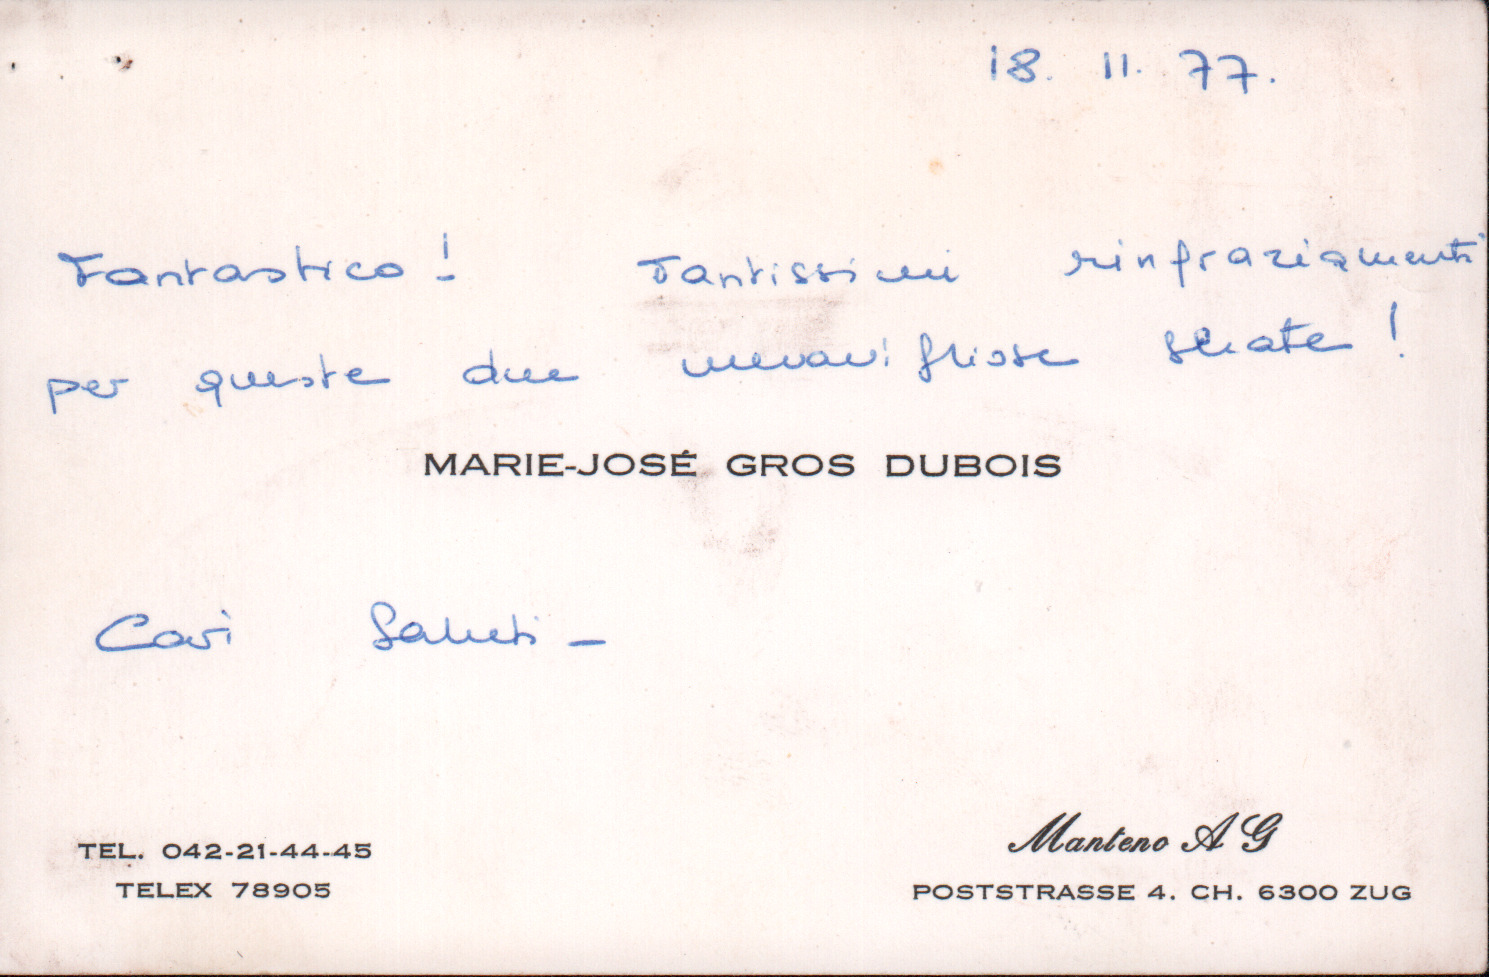 18. 11. 77.
Fantastico! Tantissimi ringraziamenti
per queste due meravigliose serate!
MARIE-JOSÉ GROS DUBOIS
Cari Saluti –
TEL. 042-21-44-45
TELEX 78905
Manteno AG
POSTSTRASSE 4. CH. 6300 ZUG